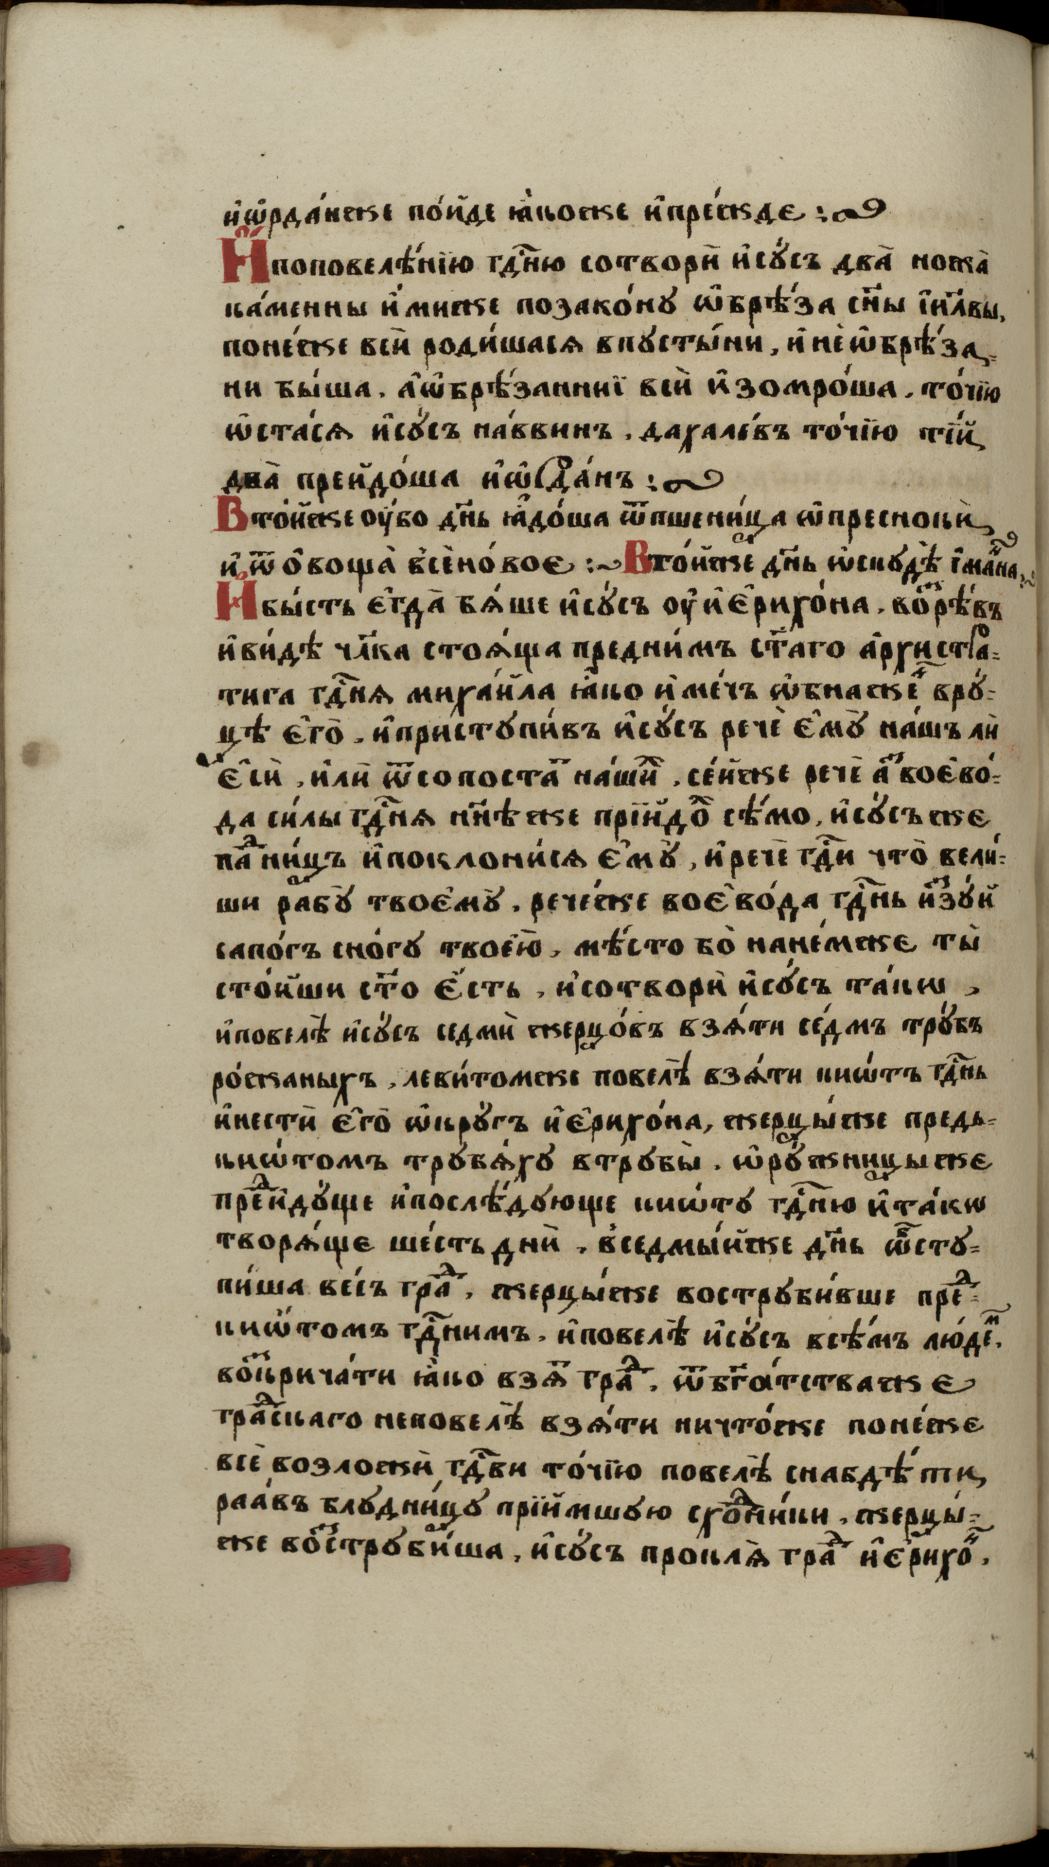 и҆ѡ҆рда́нже по́йде ꙗ҆́коже и҆пре́жде :~
И҆поповелѣ́нїю гдⷭ҇ню сотворѝ и҆сꙋ́съ два̀ ножа̀
ка́менны и҆́миже позако́нꙋ ѡ҆брѣ́за сн҃ы і҆и҃лвы,
поне́же всѝ роди́шася впꙋсты́ни, и҆неѡ҆брѣ́за-
ни бы́ша. а҆ѡ҆брѣ́заннїі всѝ и҆зомро́ша. то́чїю
ѡ҆ста́ся и҆сꙋ́съ на́ввинъ. дахале́въ то́чїю тїи́
два̀ прейдо́ша и҆ѡ҆рда́нъ :~
Вто́йже ᲂу҆́бо дн҃ь ꙗ҆до́ша ѿпшени́ца ѡ҆пресноки̑
и҆ѿ о҆́воща всѐно́вое :~ Вто́йже дн҃ь ѡ҆скꙋдѣ̀ і҆ма́нна
И҆бы́сть є҆гда̀ бя́ше и҆сꙋ́съ ᲂу҆и҆є҆рихо́на. возрѣ́въ
и҆ви́дѣ чл҃ка стоя́ща предни́мъ ст҃а́го а҆рхистра-
тига гдⷭ҇ня михаи́ла ꙗ҆́ко и҆ме́чъ ѡ҆бнаже́н врꙋ-
цѣ є҆гѡ̀. и҆пристꙋпи́въ и҆сꙋ́съ речѐ є҆мꙋ̀ на́шъ ли
є҆сѝ, и҆лѝ ѿсопоста́т на́ших. се́йже речѐ а҆́з воево́-
да си́лы гдⷭ҇ня нн҃ѣ же прїйдо́х сѣ́мо, и҆сꙋ́съ же
па́д ни́цъ и҆поклони́ся є҆мꙋ̀, и҆речѐ гдⷭ҇и что̀ вели́-
ши рабꙋ̀ твоемꙋ̀. рече́же воево́да гдⷭ҇нь и҆зꙋ́й
сапо́гъ сно́гꙋ твое́ю, мѣ́сто бо̀ нане́мже ты̀
сто́йши ст҃о є҆́сть, и҆сотворѝ и҆сꙋ́съ та́кѡ,
и҆повелѣ̀ и҆сꙋ́съ седмѝ жерцо́въ взя́ти се́дмъ трꙋ́бъ
ро́жаныхъ, леви́томже повелѣ̀ взя́ти киѡ́тъ гдⷭ҇нь
и҆нестѝ є҆го̀ ѡ҆́крꙋгъ и҆є҆рихо́на, жерцы́же предъ-
киѡ́томъ трꙋбя́хꙋ втрꙋбы̀. ѡ҆рꙋ́жницыже
пред и҆дꙋ́ще и҆послѣ́дꙋюще киѡ́тꙋ гдⷭ҇ню и҆та́кѡ
творя́ще ше́сть днѝ. вседмы́йже дн҃ь ѡ҆бстꙋ-
пи́ша ве́съ гра́д, жерцы́же вострꙋби́вше пред-
киѡ́томъ гдⷭ҇нимъ. и҆повелѣ̀ и҆сꙋ́съ всѣ́мъ лю́дем.
воскрича́ти ꙗ҆́ко взя́т гра́д. ѿбг҃атстваже
гра́дскаго неповелѣ̀ взя́ти ничто́же поне́же
всѐ возложѝ гдⷭ҇ви то́чїю повелѣ̀ снабдѣ́ти
раа́въ блꙋдни́цꙋ прїймшꙋю сходники, жерцы́-
же вострꙋби́ша, и҆сꙋ́съ прокля̀ гра́д и҆є҆рихо́н.